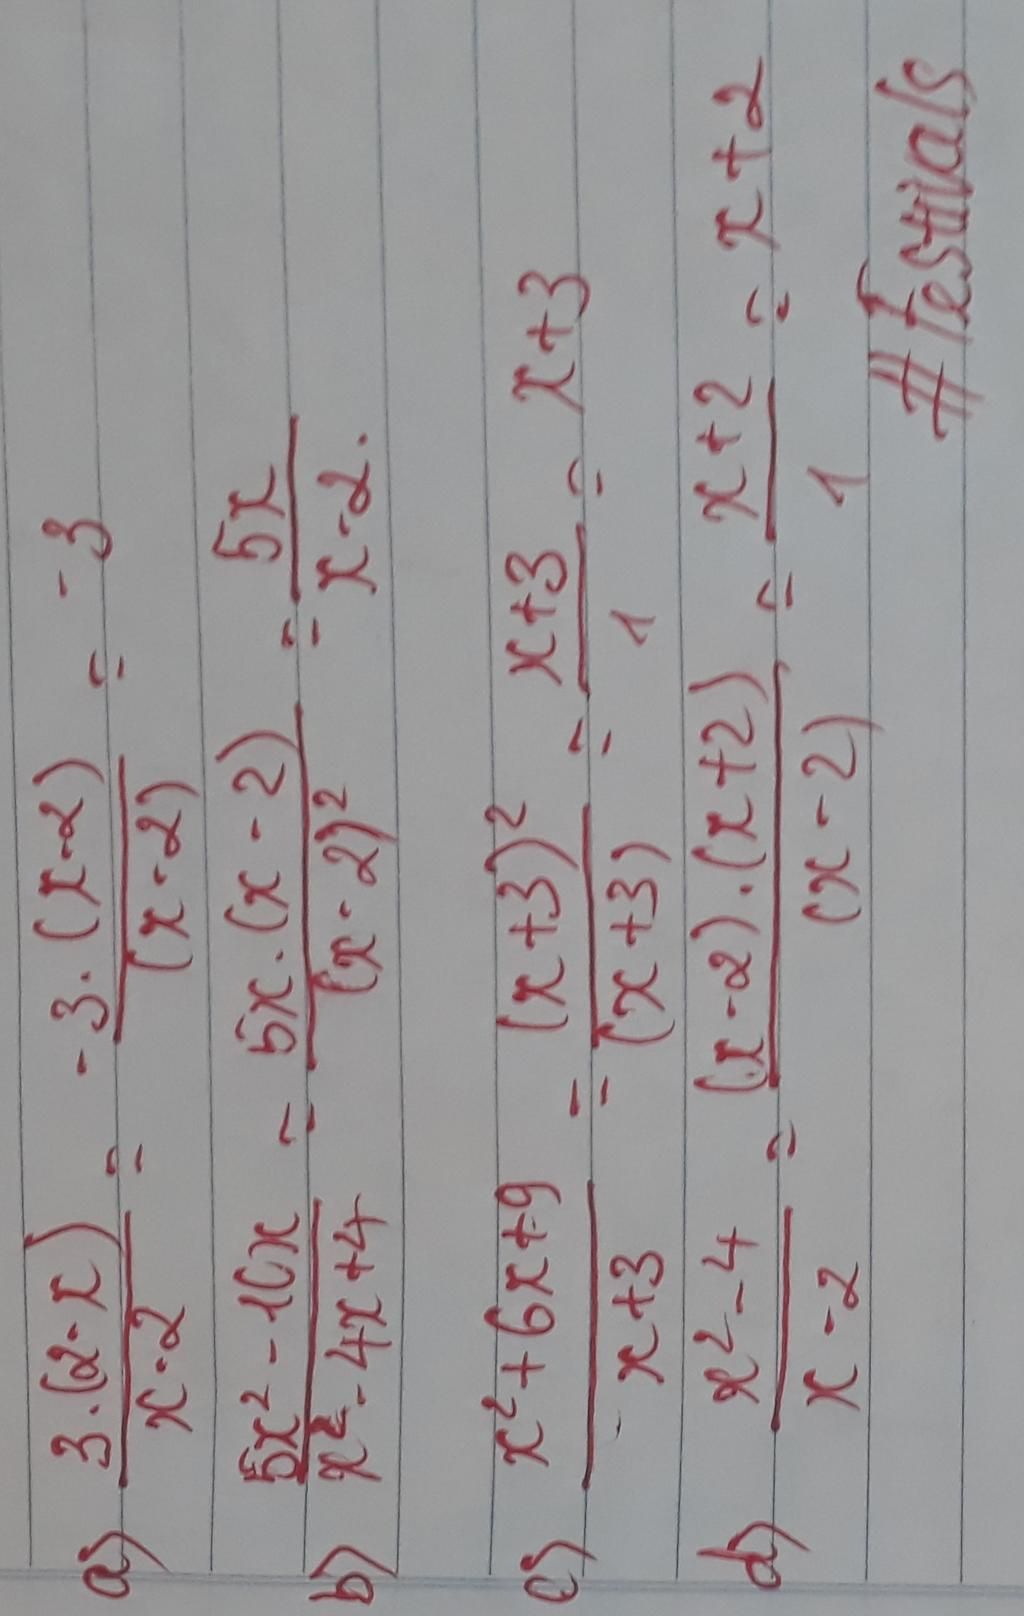 a) 3.(2-x)/x-2 = -3.(x-2)/(x-2) = -3
b) 5x²-10x/x²-4x+4 = 5x.(x-2)/(x-2)² = 5x/x-2.
c) x²+6x+9/x+3 = (x+3)²/(x+3) = x+3/1 = x+3
d) x²-4/x-2 = (x-2).(x+2)/(x-2) = x+2/1 = x+2